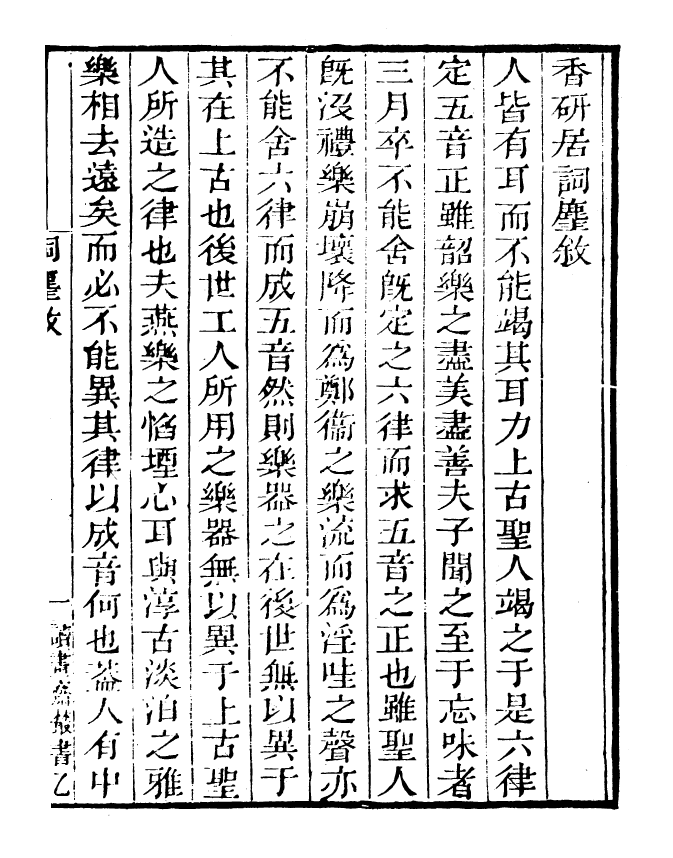 香研居詞麈敘
人皆有耳而不能竭其耳力上古聖人竭之于是六律
定五音正雖韶樂之盡美盡善夫子聞之至于忘味者
三月卒不能舍旣定之六律而求五音之正也雖聖人
旣沒禮樂崩壞降而爲鄭衞之樂流而爲淫哇之聲亦
不能舍六律而成五音然則樂器之在後世無以異于
其在上古也後世工人所用之樂器無以異于上古聖
人所造之律也夫燕樂之慆堙心耳與淳古淡泊之雅
樂相去遠矣而必不能異其律以成音何也葢人有中
詞麈敘
一
讀書齋叢書乙